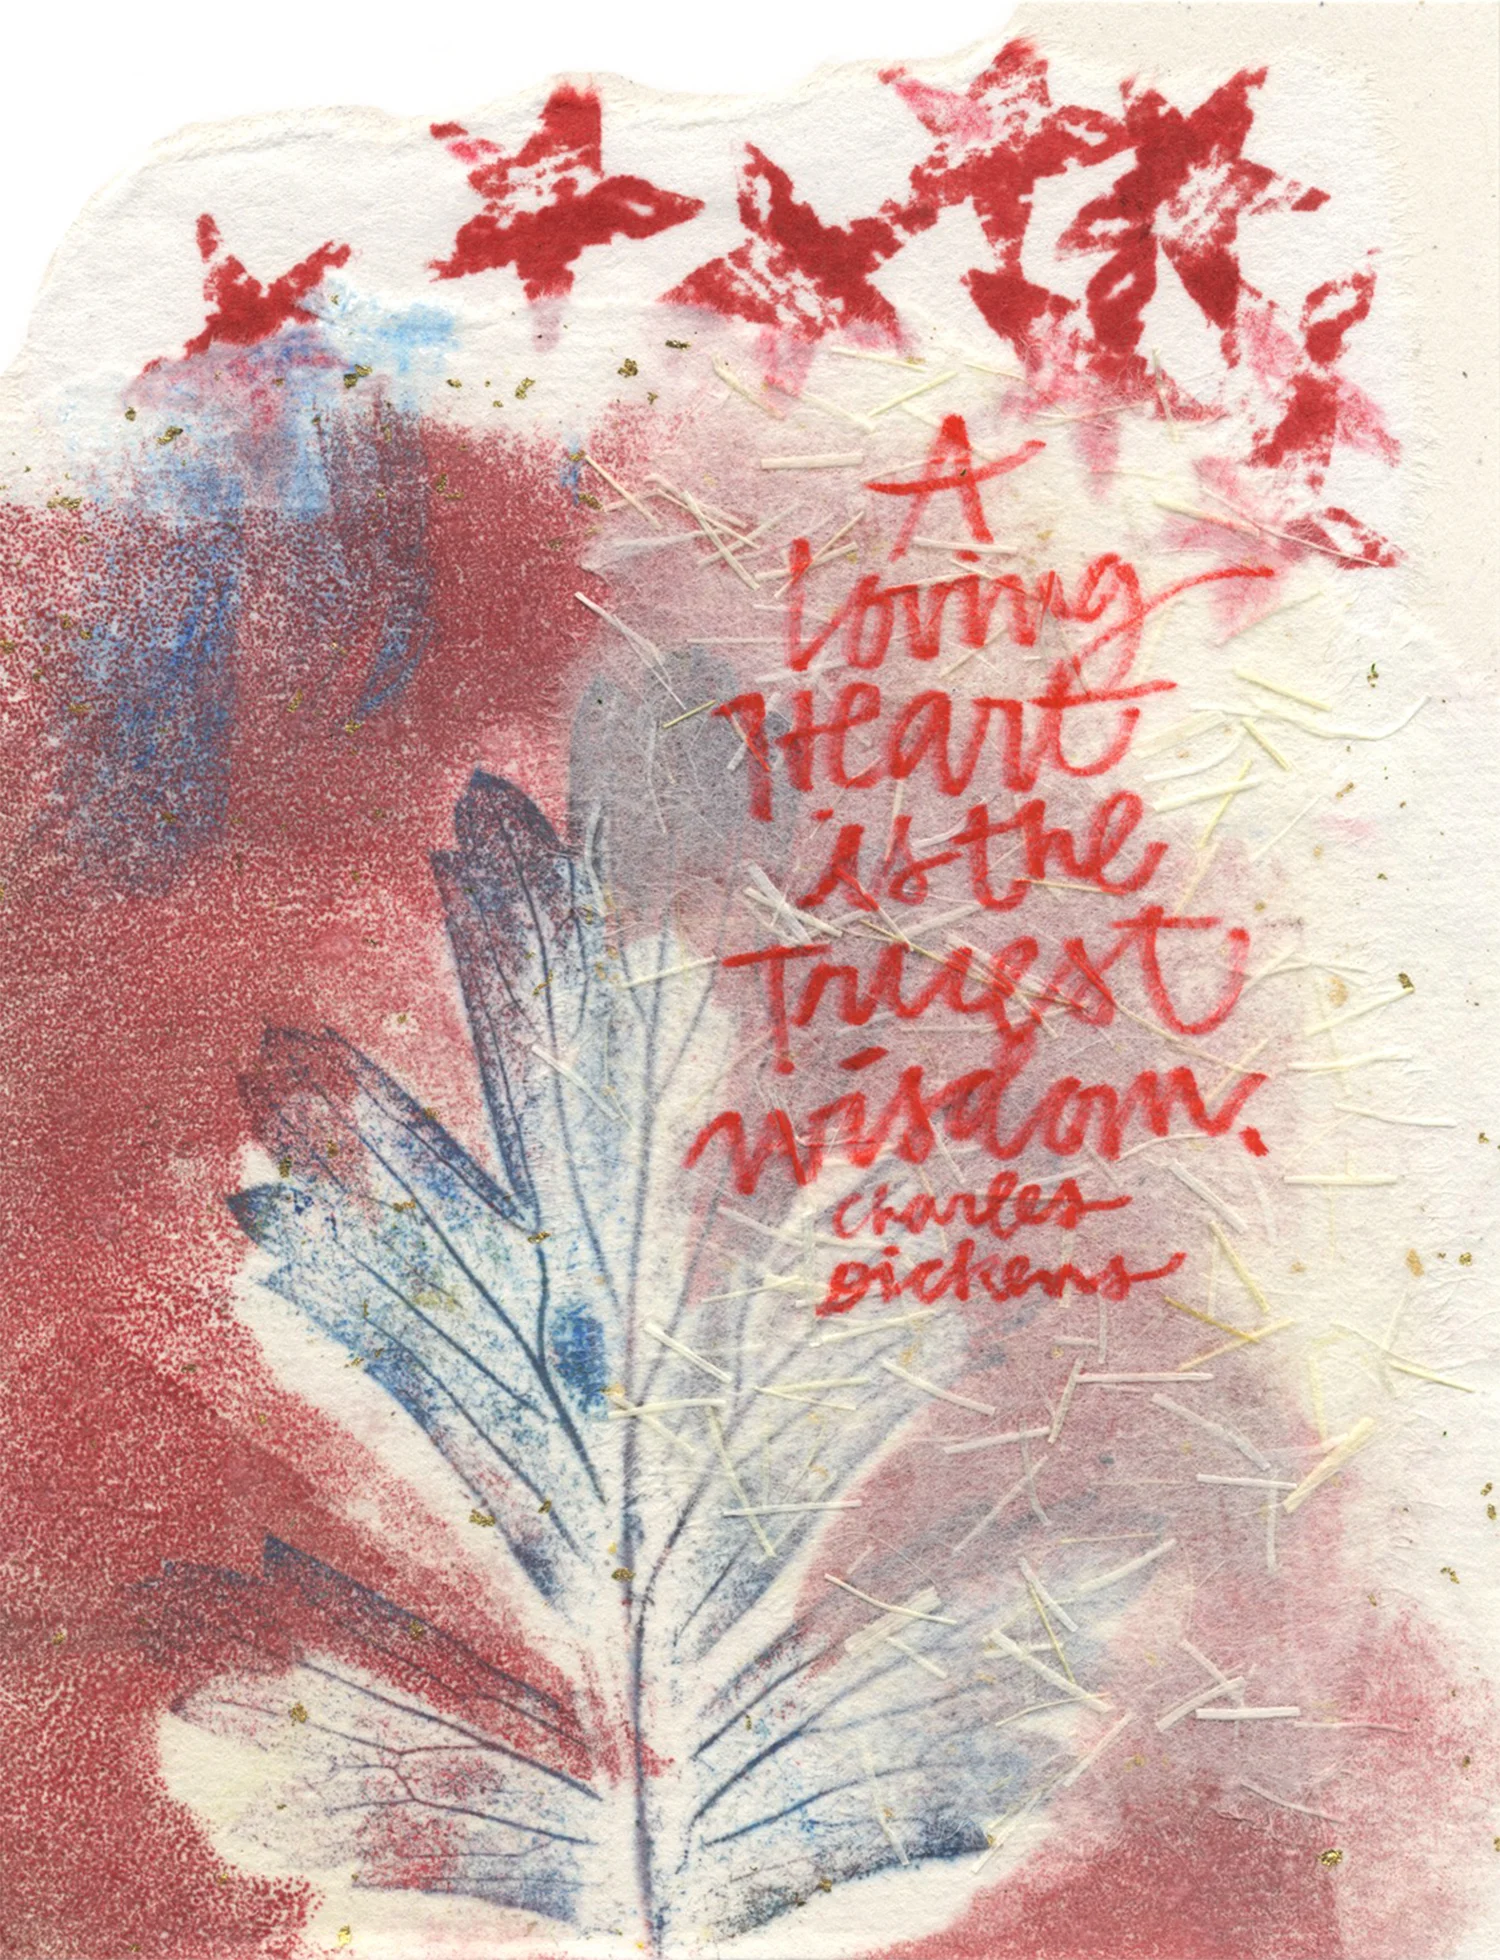 A
loving
Heart
is the
Truest
wisdom.
charles
Dickens